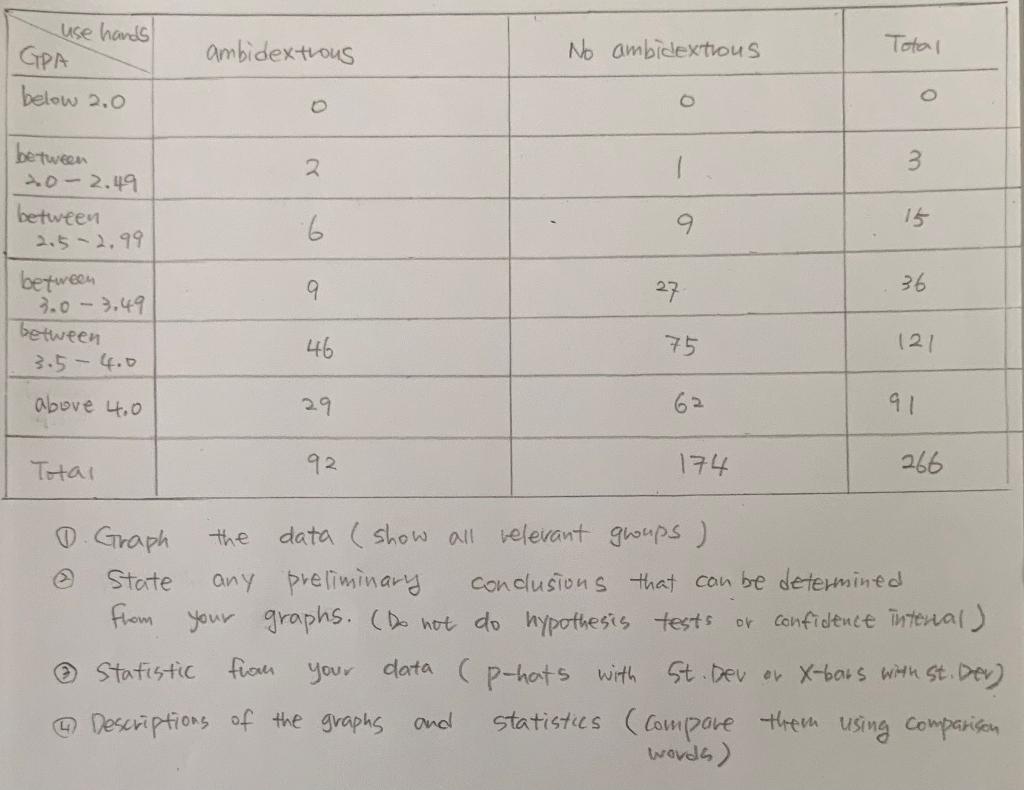 use hands
GPA
ambidextrous
No ambidextrous
Total
below 2.0 0 0 0
between
2.0 - 2.49 2 1 3
between
2.5 - 2.99 6 9 15
between
3.0 - 3.49 9 27 36
between
3.5 - 4.0 46 75 121
above 4.0 29 62 91
Total 92 174 266
① Graph the data ( show all relevant groups )
② State any preliminary conclusions that can be determined
from your graphs. ( Do not do hypothesis tests or confidence interval )
③ Statistic from your data ( p-hats with St. Dev or X-bars with St. Dev )
④ Descriptions of the graphs and statistics ( Compare them using comparison
words )